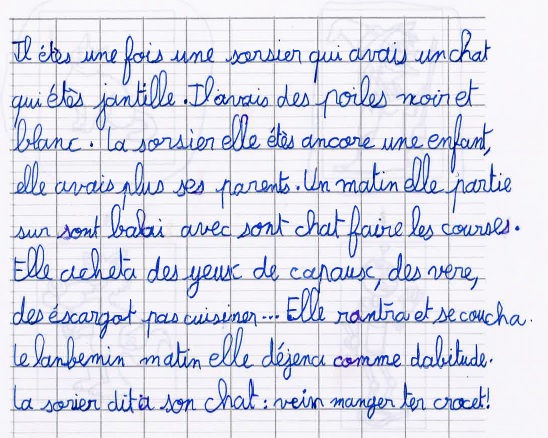 Il étès une fois une sorsier qui avais un chat
qui étès jantille. Il avais des poiles noir et
blanc. La sorsier elle étès ancore une enfant,
elle avais plus ses parents. Un matin elle partie
sur sont balai avec sont chat faire les courses.
Elle acheta des yeux de capaux, des vere,
des éscargot pas cuisiner... Elle rantra et se coucha.
Le lanbemin matin elle déjena comme dabitude.
La sorier dit à son chat : vein manger ter crocet!